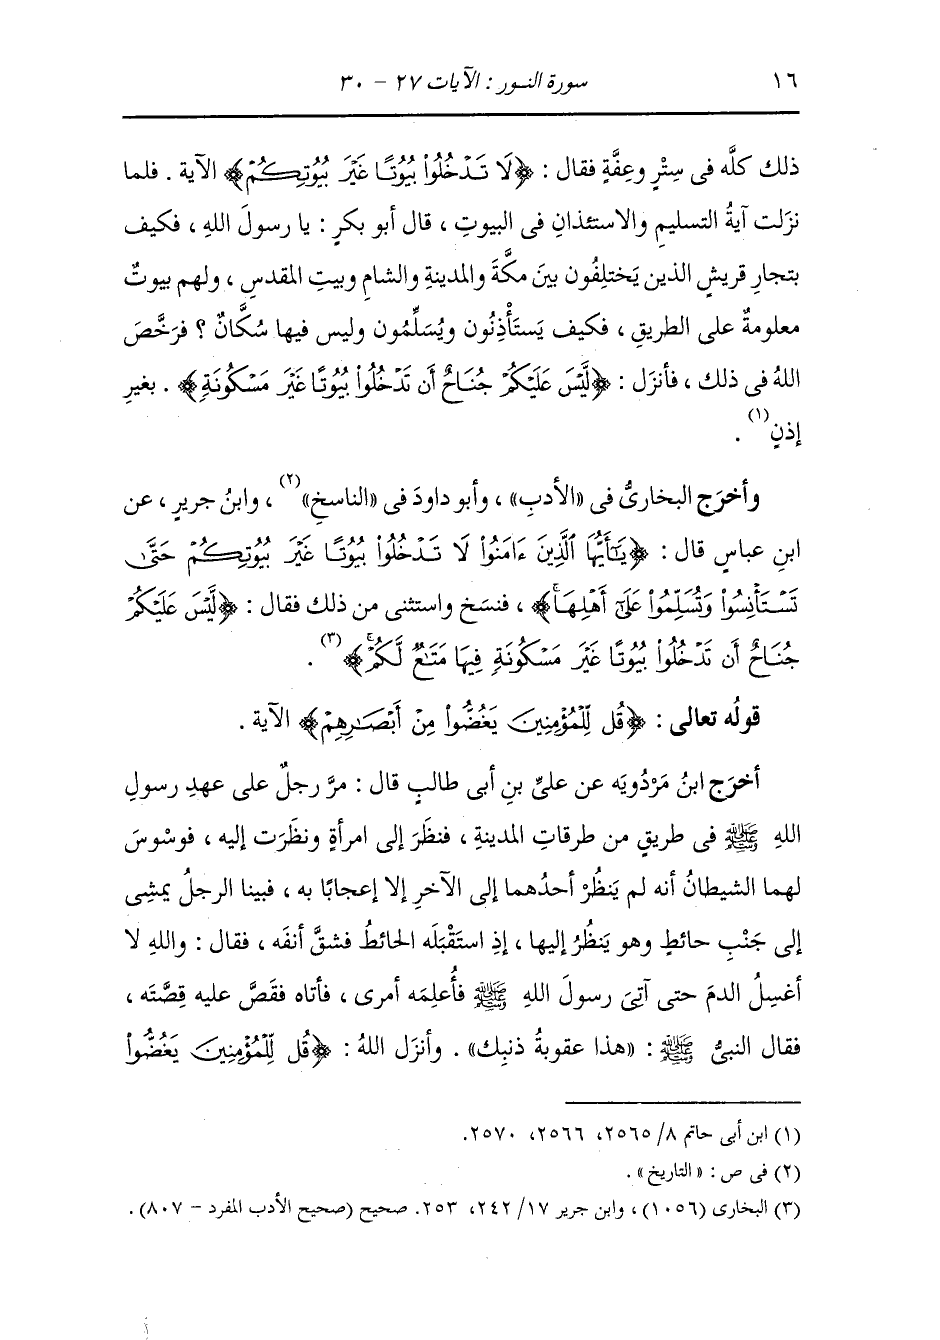 ١٦ سورة النور : الآيات ٢٧ - ٣٠
ذلك كلَّه فى سِتْرٍ وعِفَّةٍ فقال : ﴿لَا تَدْخُلُوا۟ بُيُوتًا غَيْرَ بُيُوتِكُمْ﴾ الآية . فلما
نزَلت آيةُ التسليمِ والاستئذانِ فى البيوتِ ، قال أبو بكرٍ : يا رسولَ اللهِ ، فكيف
بتجارِ قريشٍ الذين يَختلِفُون بينَ مكَّةَ والمدينةِ والشامِ وبيتِ المقدسِ ، ولهم بيوتٌ
معلومةٌ على الطريقِ ، فكيف يَستَأْذِنُون ويُسَلِّمُون وليس فيها سُكَّانٌ ؟ فرَخَّصَ
اللهُ فى ذلك ، فأنزَل : ﴿لَّيْسَ عَلَيْكُمْ جُنَاحٌ أَن تَدْخُلُوا۟ بُيُوتًا غَيْرَ مَسْكُونَةٍ﴾ . بغيرِ
إذنٍ(١) .
وأخرَج البخارىُّ فى «الأدبِ» ، وأبو داودَ فى «الناسخِ»(٢) ، وابنُ جريرٍ ، عن
ابنِ عباسٍ قال : ﴿يَـٰٓأَيُّهَا ٱلَّذِينَ ءَامَنُوا۟ لَا تَدْخُلُوا۟ بُيُوتًا غَيْرَ بُيُوتِكُمْ حَتَّىٰ
تَسْتَأْنِسُوا۟ وَتُسَلِّمُوا۟ عَلَىٰٓ أَهْلِهَاۚ﴾ ، فنسَخ واستثنى من ذلك فقال : ﴿لَّيْسَ عَلَيْكُمْ
جُنَاحٌ أَن تَدْخُلُوا۟ بُيُوتًا غَيْرَ مَسْكُونَةٍ فِيهَا مَتَـٰعٌ لَّكُمْۚ﴾(٣) .
قولُه تعالى : ﴿قُل لِّلْمُؤْمِنِينَ يَغُضُّوا۟ مِنْ أَبْصَـٰرِهِمْ﴾ الآية .
أخرَج ابنُ مَرْدُويَه عن علىِّ بنِ أبى طالبٍ قال : مرَّ رجلٌ على عهدِ رسولِ
اللهِ ﷺ فى طريقٍ من طرقاتِ المدينةِ ، فنظَرَ إلى امرأةٍ ونظَرَت إليه ، فوسْوسَ
لهما الشيطانُ أنه لم يَنظُرْ أحدُهما إلى الآخرِ إلا إعجابًا به ، فبينا الرجلُ يمشِى
إلى جَنْبِ حائطٍ وهو يَنظُرُ إليها ، إذِ استَقْبَلَه الحائطُ فشقَّ أنفَه ، فقال : واللهِ لا
أغسِلُ الدمَ حتى آتِىَ رسولَ اللهِ ﷺ فأُعلِمَه أمرى ، فأتاه فقَصَّ عليه قِصَّتَه ،
فقال النبىُّ ﷺ : «هذا عقوبةُ ذنبِك» . وأنزَل اللهُ : ﴿قُل لِّلْمُؤْمِنِينَ يَغُضُّوا۟
(١) ابن أبى حاتم ٨/ ٢٥٦٥، ٢٥٦٦، ٢٥٧٠.
(٢) فى ص : «التاريخ» .
(٣) البخارى (١٠٥٦) ، وابن جرير ١٧/ ٢٤٢، ٢٥٣. صحيح (صحيح الأدب المفرد - ٨٠٧) .